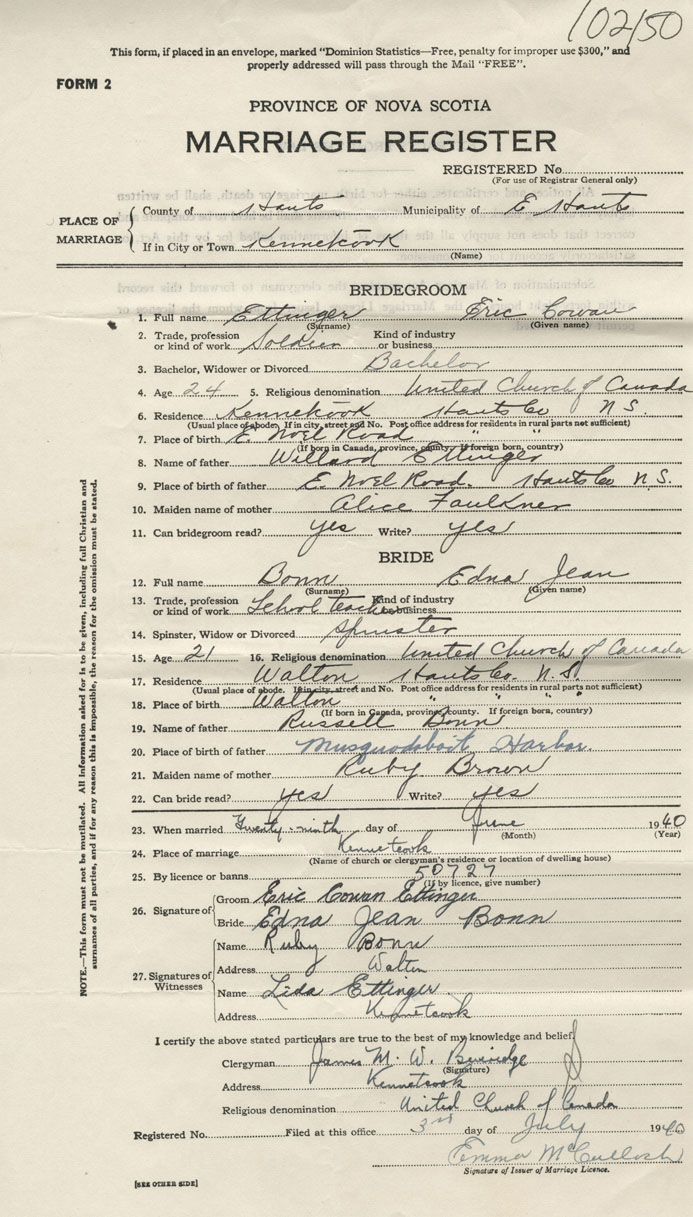 10250
This form, if placed in an envelope, marked "Dominion Statistics—Free, penalty for improper use $300," and
properly addressed will pass through the Mail "FREE".
FORM 2
PROVINCE OF NOVA SCOTIA
MARRIAGE REGISTER
REGISTERED No.
(For use of Registrar General only)
PLACE OF MARRIAGE
County of Hants Municipality of E Hants
If in City or Town Kennetcook
(Name)
BRIDEGROOM
1. Full name Ettinger Eric Cowan
(Surname) (Given name)
2. Trade, profession or kind of work Soldier Kind of industry or business
3. Bachelor, Widower or Divorced Bachelor
4. Age 24 5. Religious denomination United Church of Canada
6. Residence Kennetcook Hants Co N S.
(Usual place of abode. If in city, street and No. Post office address for residents in rural parts not sufficient)
7. Place of birth E Noel Road " "
(If born in Canada, province, county. If foreign born, country)
8. Name of father Willard Ettinger
9. Place of birth of father E. Noel Road. Hants Co N.S.
10. Maiden name of mother Alice Faulkner
11. Can bridegroom read? yes Write? yes
BRIDE
12. Full name Bonn Edna Jean
(Surname) (Given name)
13. Trade, profession or kind of work School teacher Kind of industry or business
14. Spinster, Widow or Divorced Spinster
15. Age 21 16. Religious denomination United Church of Canada
17. Residence Walton Hants Co. N.S.
(Usual place of abode. If in city, street and No. Post office address for residents in rural parts not sufficient)
18. Place of birth Walton " "
(If born in Canada, province, county. If foreign born, country)
19. Name of father Russell Bonn
20. Place of birth of father Musquodoboit Harbor.
21. Maiden name of mother Ruby Brown
22. Can bride read? yes Write? yes
23. When married Twenty-ninth day of June 1940
(Month) (Year)
24. Place of marriage Kennetcook
(Name of church or clergyman's residence or location of dwelling house)
25. By licence or banns 50727
(If by licence, give number)
26. Signature of
Groom Eric Cowan Ettinger
Bride Edna Jean Bonn
27. Signatures of Witnesses
Name Ruby Bonn
Address Walton
Name Lida Ettinger
Address Kennetcook
I certify the above stated particulars are true to the best of my knowledge and belief.
Clergyman James M. W. Beveridge
(Signature)
Address Kennetcook
Religious denomination United Church of Canada
Registered No. Filed at this office 3rd day of July 1940
Emma McCulloch
Signature of Issuer of Marriage Licence.
[SEE OTHER SIDE]
NOTE.—This form must not be mutilated. All information asked for is to be given, including full Christian and
surnames of all parties, and if for any reason this is impossible, the reason for the omission must be stated.